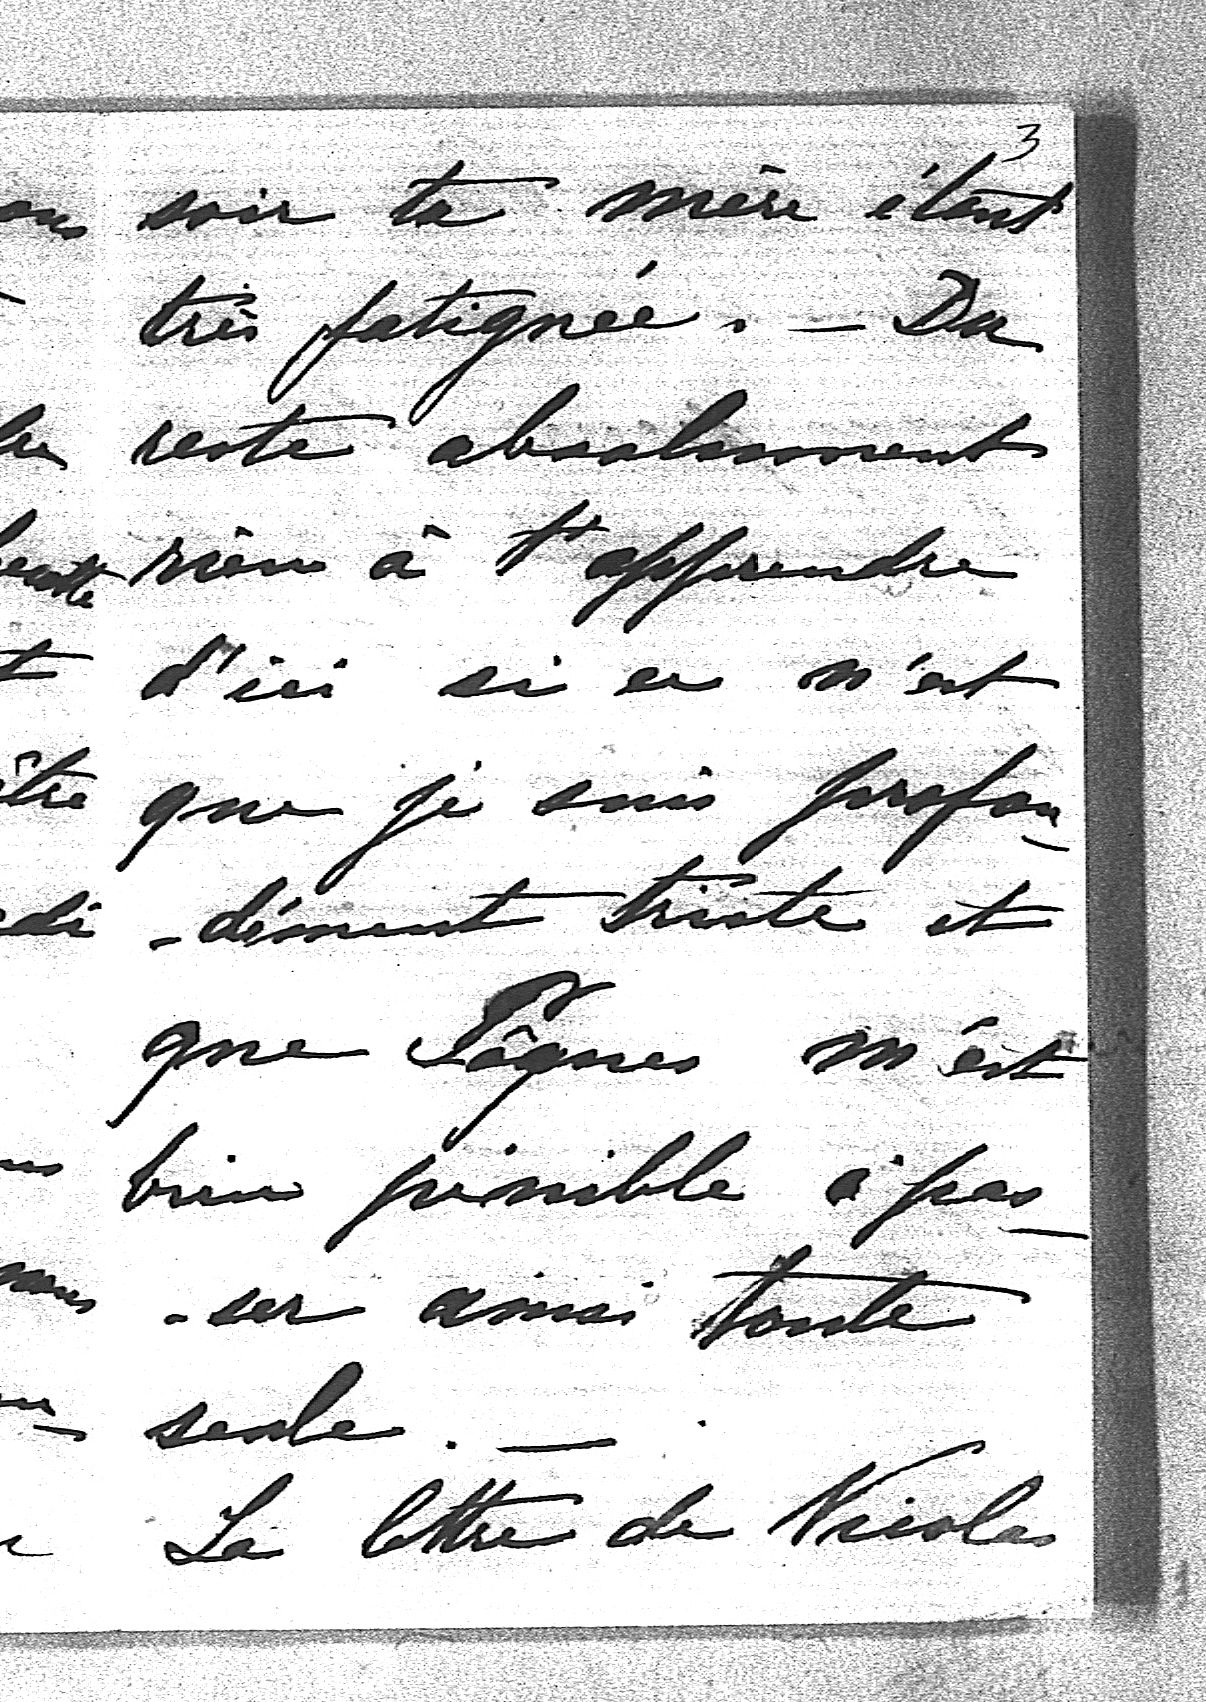 3
soir ta mère étant
très fatiguée. — Du
reste absolument
rien à t'apprendre
d'ici si ce n'est
que je suis profon-
-dément triste et
que Pâques m'est
bien pénible à pas-
-ser ainsi toute
seule. —
La lettre de Nicolas